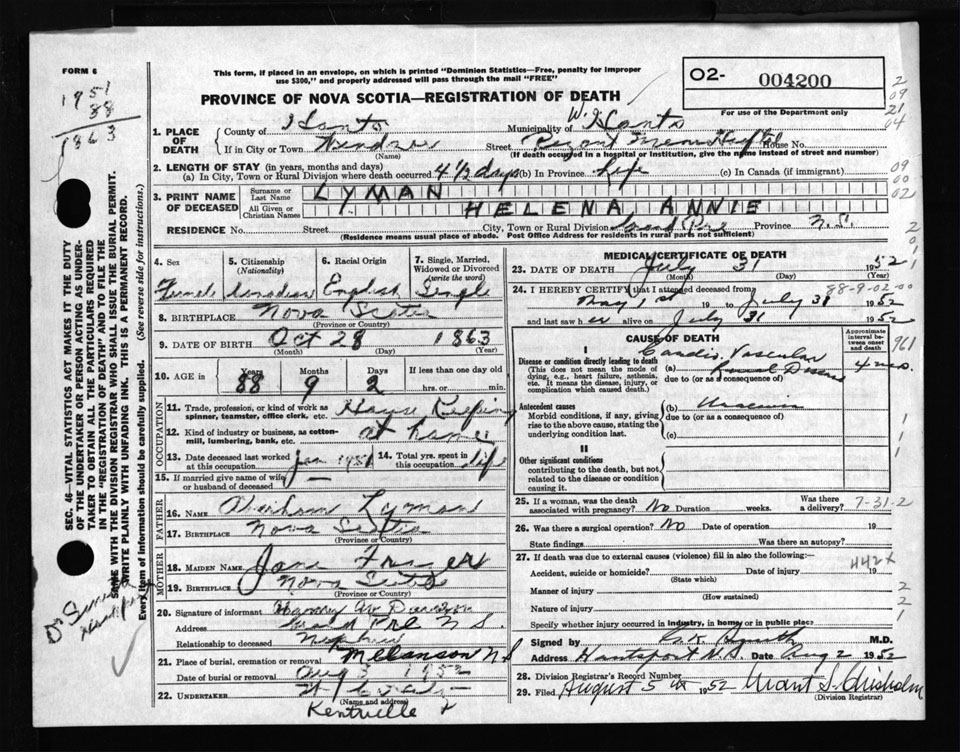 FORM 6
1951
88
1863
This form, if placed in an envelope, on which is printed "Dominion Statistics—Free, penalty for improper
use $300," and properly addressed will pass through the mail "FREE"
O2- 004200
For use of the Department only
PROVINCE OF NOVA SCOTIA—REGISTRATION OF DEATH
1. PLACE OF DEATH { County of Hants Municipality of W. Hants
If in City or Town Windsor (Name) Street House No.
(If death occurred in a hospital or institution, give the name instead of street and number)
2. LENGTH OF STAY (in years, months and days)
(a) In City, Town or Rural Division where death occurred 4 1/2 days (b) In Province Life (c) In Canada (if immigrant)
3. PRINT NAME OF DECEASED { Surname or Last Name LYMAN
All Given or Christian Names HELENA ANNIE
RESIDENCE No. Street City, Town or Rural Division Grand Pre Province N.S.
(Residence means usual place of abode. Post Office Address for residents in rural parts not sufficient)
4. Sex Female
5. Citizenship (Nationality) Canadian
6. Racial Origin English
7. Single, Married, Widowed or Divorced (write the word) Single
8. BIRTHPLACE Nova Scotia
(Province or Country)
9. DATE OF BIRTH Oct 28 1863
(Month) (Day) (Year)
10. AGE in Years 88 Months 9 Days 2 If less than one day old hrs. or min.
OCCUPATION
11. Trade, profession, or kind of work as spinner, teamster, office clerk, etc. House Keeping
12. Kind of industry or business, as cotton-mill, lumbering, bank, etc. at home
13. Date deceased last worked at this occupation Jan 1951 14. Total yrs. spent in this occupation life
15. If married give name of wife or husband of deceased —
FATHER
16. NAME Abraham Lyman
17. BIRTHPLACE Nova Scotia
(Province or Country)
MOTHER
18. MAIDEN NAME Jane
19. BIRTHPLACE Nova Scotia
(Province or Country)
20. Signature of informant Harvey
Address Grand Pre N S.
Relationship to deceased Nephew
21. Place of burial, cremation or removal Melanson N S
Date of burial or removal Aug 3 1952
22. UNDERTAKER
(Name and address)
Kentville
MEDICAL CERTIFICATE OF DEATH
23. DATE OF DEATH July 31 1952
(Month) (Day) (Year)
24. I HEREBY CERTIFY that I attended deceased from 88-9-02-00
May 1st 19 to July 31 1952
and last saw her alive on July 31 1952
CAUSE OF DEATH
Approximate interval between onset and death
I
Disease or condition directly leading to death (a) Cardio Vascular Renal Disease 4 mo.
(This does not mean the mode of dying, e.g., heart failure, asthenia, etc. It means the disease, injury, or complication which caused death.)
due to (or as a consequence of)
Antecedent causes (b) Uraemia
Morbid conditions, if any, giving rise to the above cause, stating the underlying condition last.
due to (or as a consequence of)
(c)
II
Other significant conditions
contributing to the death, but not related to the disease or condition causing it.
25. If a woman, was the death associated with pregnancy? No Duration weeks. Was there a delivery? 7-31-2
26. Was there a surgical operation? No Date of operation 19
State findings Was there an autopsy?
27. If death was due to external causes (violence) fill in also the following:—
Accident, suicide or homicide? (State which) Date of injury 19
442x
Manner of injury
(How sustained)
Nature of injury
Specify whether injury occurred in industry, in home, or in public place
Signed by M.D.
Address Hantsport N.S. Date Aug 2 1952
28. Division Registrar's Record Number
29. Filed August 5th 1952 Grant S. Chisholm
(Division Registrar)
SEC. 46—VITAL STATISTICS ACT MAKES IT THE DUTY
OF THE UNDERTAKER OR PERSON ACTING AS UNDER-
TAKER TO OBTAIN ALL THE PARTICULARS REQUIRED
IN THE "REGISTRATION OF DEATH" AND TO FILE THE
SAME WITH THE DIVISION REGISTRAR WHO SHALL ISSUE THE BURIAL PERMIT.
WRITE PLAINLY WITH UNFADING INK. THIS IS A PERMANENT RECORD.
Every item of information should be carefully supplied. (See reverse side for instructions.)